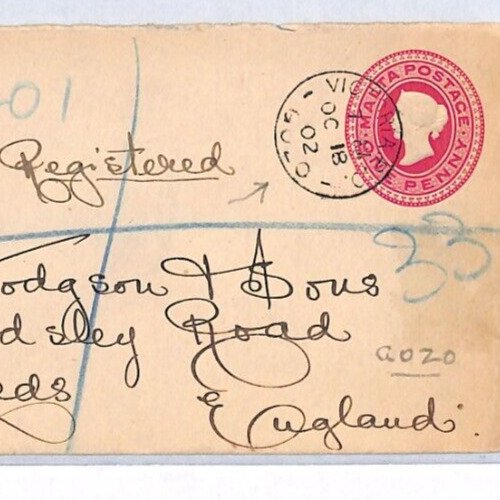 01
MALTA POSTAGE
ONE PENNY
VICTORIA
GOZO
OC 18
02
Registered
Hodgson & Sons
dsley Road
eds
England.
33
GOZO